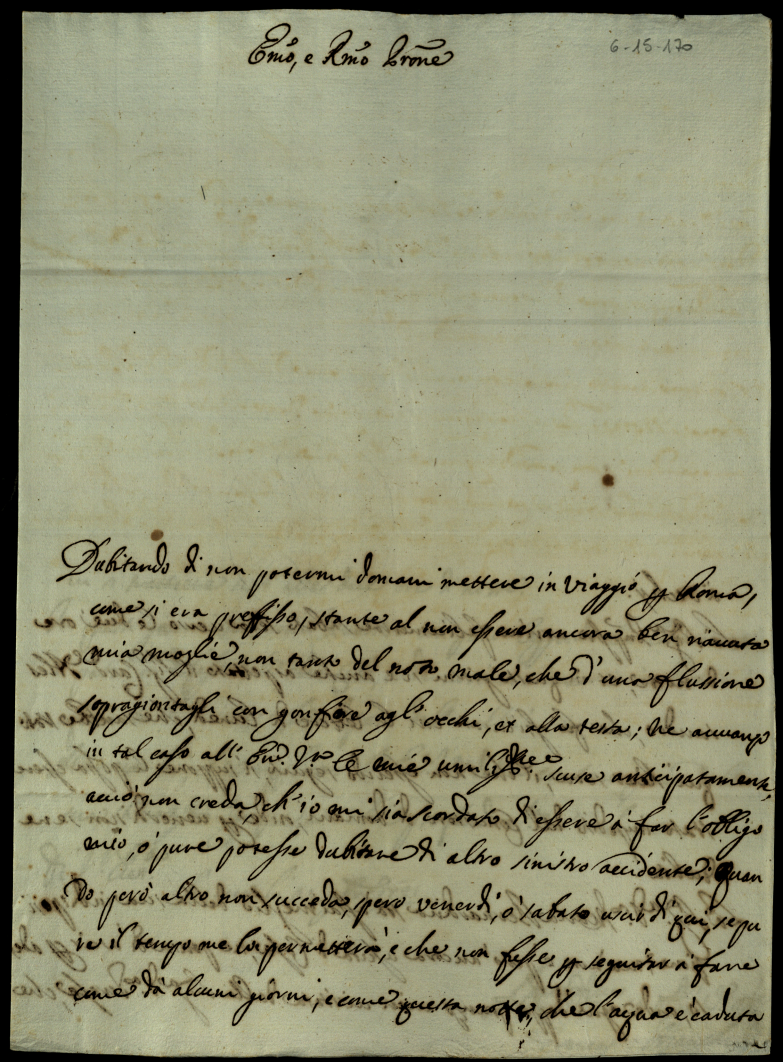 Emo, e Rmo Prone
6-15-170
Dubitando di non potermi domani mettere in viaggio p Roma,
come si era prefisso, stante al non essere ancora ben riavuta
mia moglie, non tanto del noto male, che d'una flussione
sopragiontagli con gonfiore agl'occhi, et alla testa; ne avanzo
in tal caso all' Em. Vra le mie umilissme scuse anticipatamente,
acciò non creda, ch'io mi sia scordato di essere à far l'obligo
mio, ò pure potesse dubitare di altro sinistro accidente; quan
do però altro non succeda, spero venerdi, ò sabato uscir di qui, sepu
re il tempo me lo permetterà, e che non fosse p seguitar à fare
come dà alcuni giorni, e come questa notte, che l'acqua è caduta